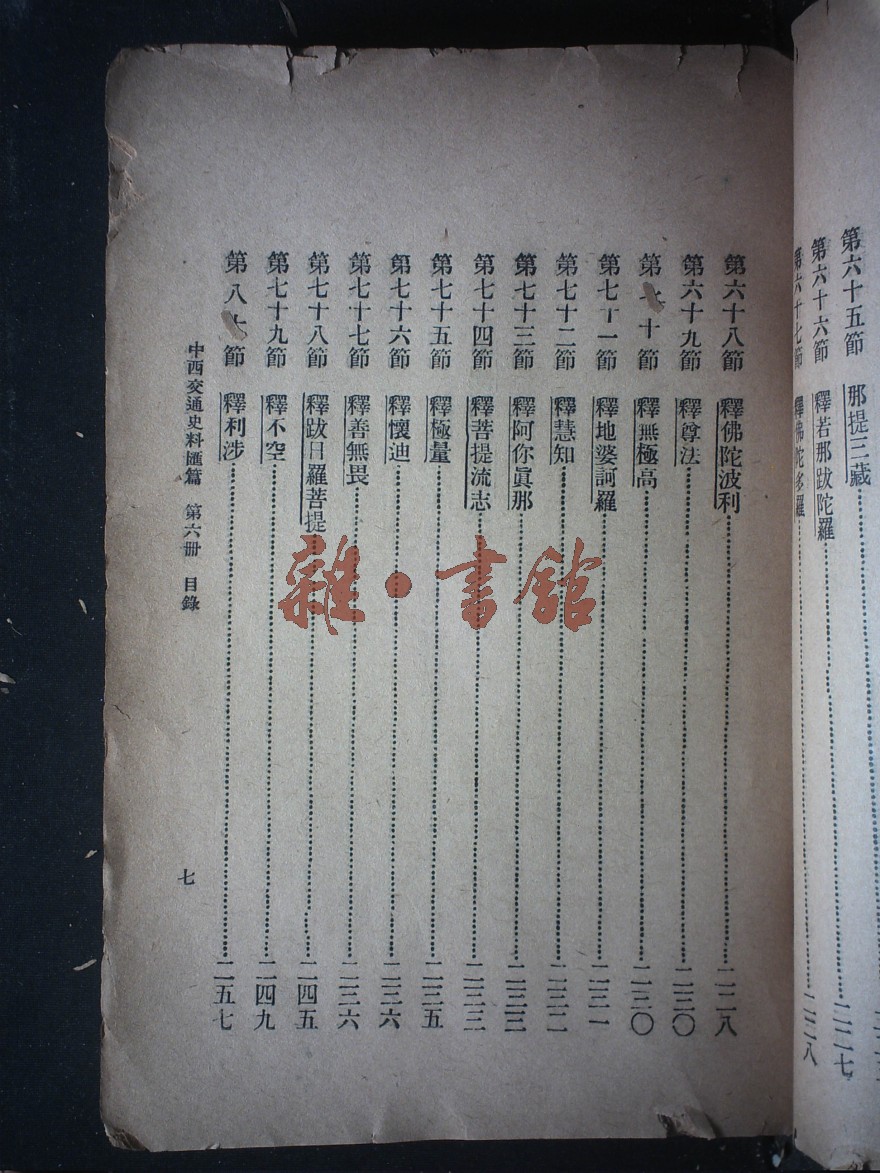 第六十五節 那提三藏
第六十六節 釋若那跋陀羅 二二七
第六十七節 釋佛陀多羅 二二八
第六十八節 釋佛陀波利 二二八
第六十九節 釋尊法 二三〇
第七十節 釋無極高 二三〇
第七十一節 釋地婆訶羅 二三一
第七十二節 釋慧知 二三二
第七十三節 釋阿你眞那 二三三
第七十四節 釋菩提流志 二三三
第七十五節 釋極量 二三五
第七十六節 釋懷迪 二三六
第七十七節 釋善無畏 二三六
第七十八節 釋跋日羅菩提 二四五
第七十九節 釋不空 二四九
第八十節 釋利涉 二五七
中西交通史料匯篇 第六册 目錄
七
雜·書館